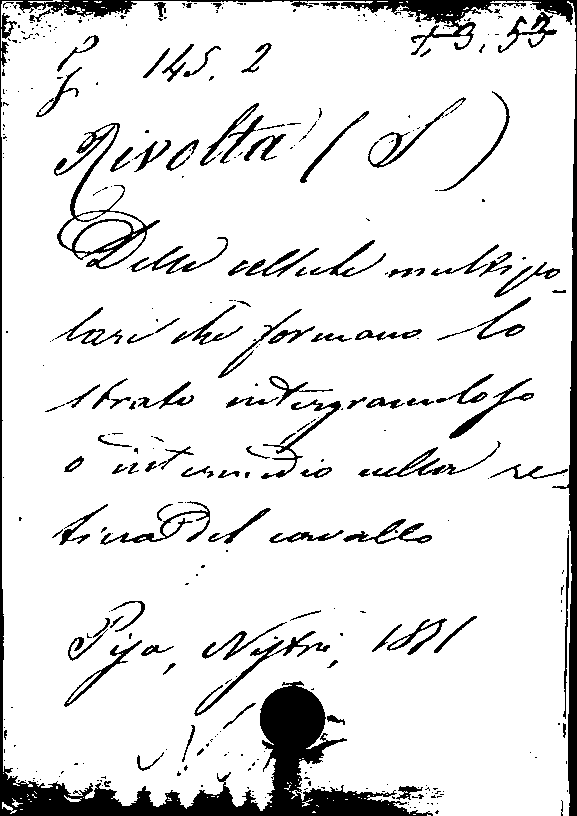 145.2
+.3.53
Rivolta (S)
Delle cellule multipo-
lari che formano lo
strato intergranuloso
o intermedio nella re-
tina del cavallo
Pisa, Nistri, 1871